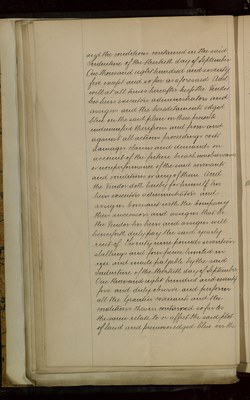 and the conditions contained in the said
Indenture of the thirtieth day of September
One thousand eight hundred and seventy
five except and so far as aforesaid And
will at all times hereafter keep the Vendor
his heirs executors administrators and
assigns and the hereditaments edged
blue on the said plan in these presents
indemnified therefrom and from and
against all actions proceedings costs
damages claims and demands on
account of the future breach nonobservance
or nonperformance of the said covenants
and conditions or any of them And
the Vendor doth hereby for himself his
heirs executors administrators and
assigns covenant with the Company
their successors and assigns that he
the Vendor his heirs and assigns will
henceforth duly pay the said yearly
rent of Twenty nine pounds nineteen
shillings and four pence limited in
use and made payable by the said
Indenture of the thirtieth day of September
One thousand eight hundred and seventy
five and duly observe and perform
all the Grantees covenants and the
conditions therein contained so far as
the same relate to or affect the said plot
of land and premises edged blue on the